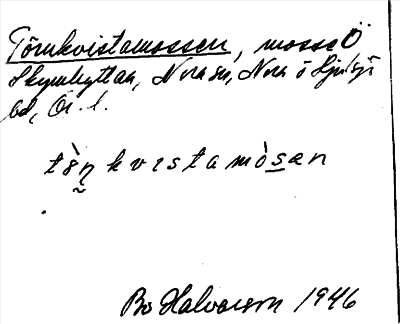 Törnkvistamossen, mosse Ö
Skymhyttan, Nora sn, Nora o Hjulsjö
bd, Ör. l.
tö̀ṇkvistamòsan
Bo Halvarson 1946